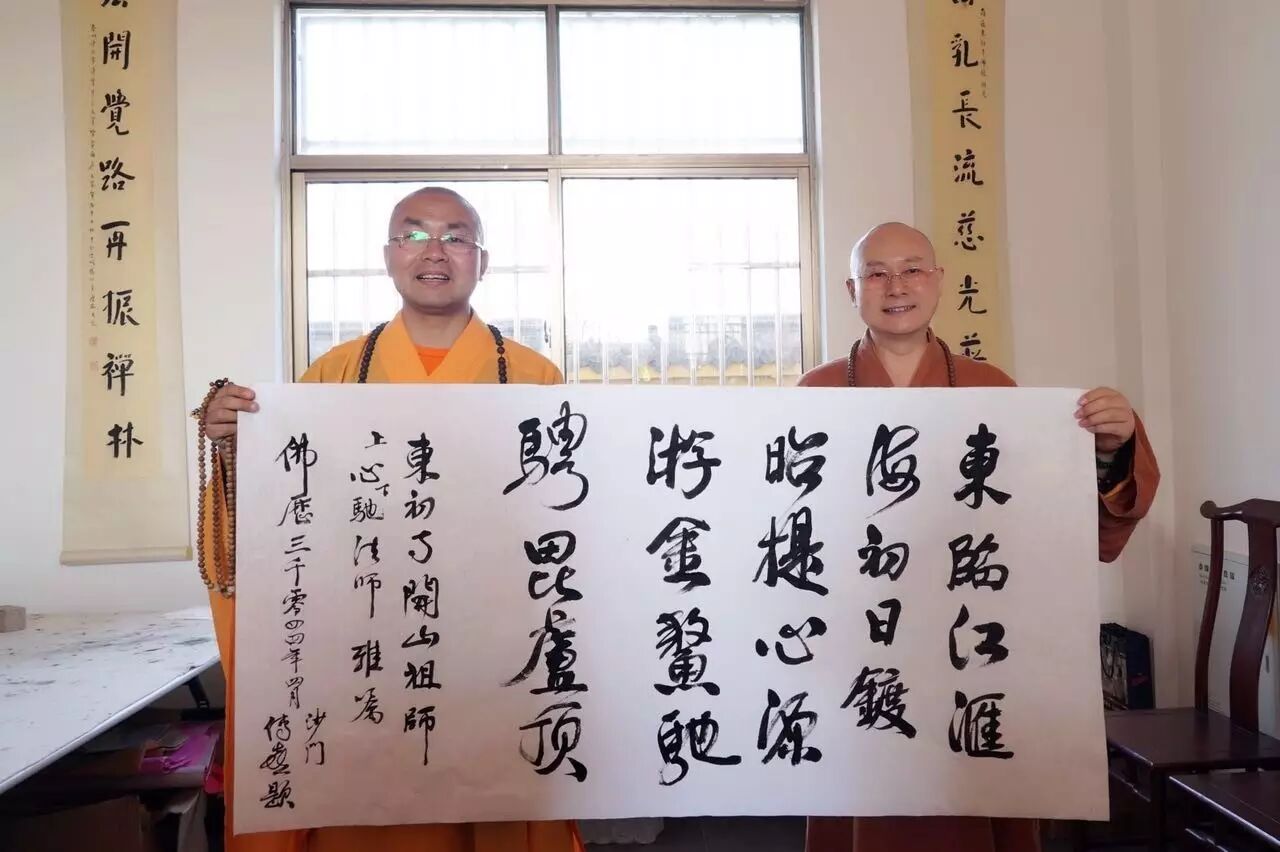 乳長流慈光
開覺路再振禪林
東臨江滙
海初日鍍
昭提心源
游金鰲馳
騁毘盧頂
東初寺開山祖師
上心下馳法師 雅属
佛歷三千零四四年四月
沙门
传喜题